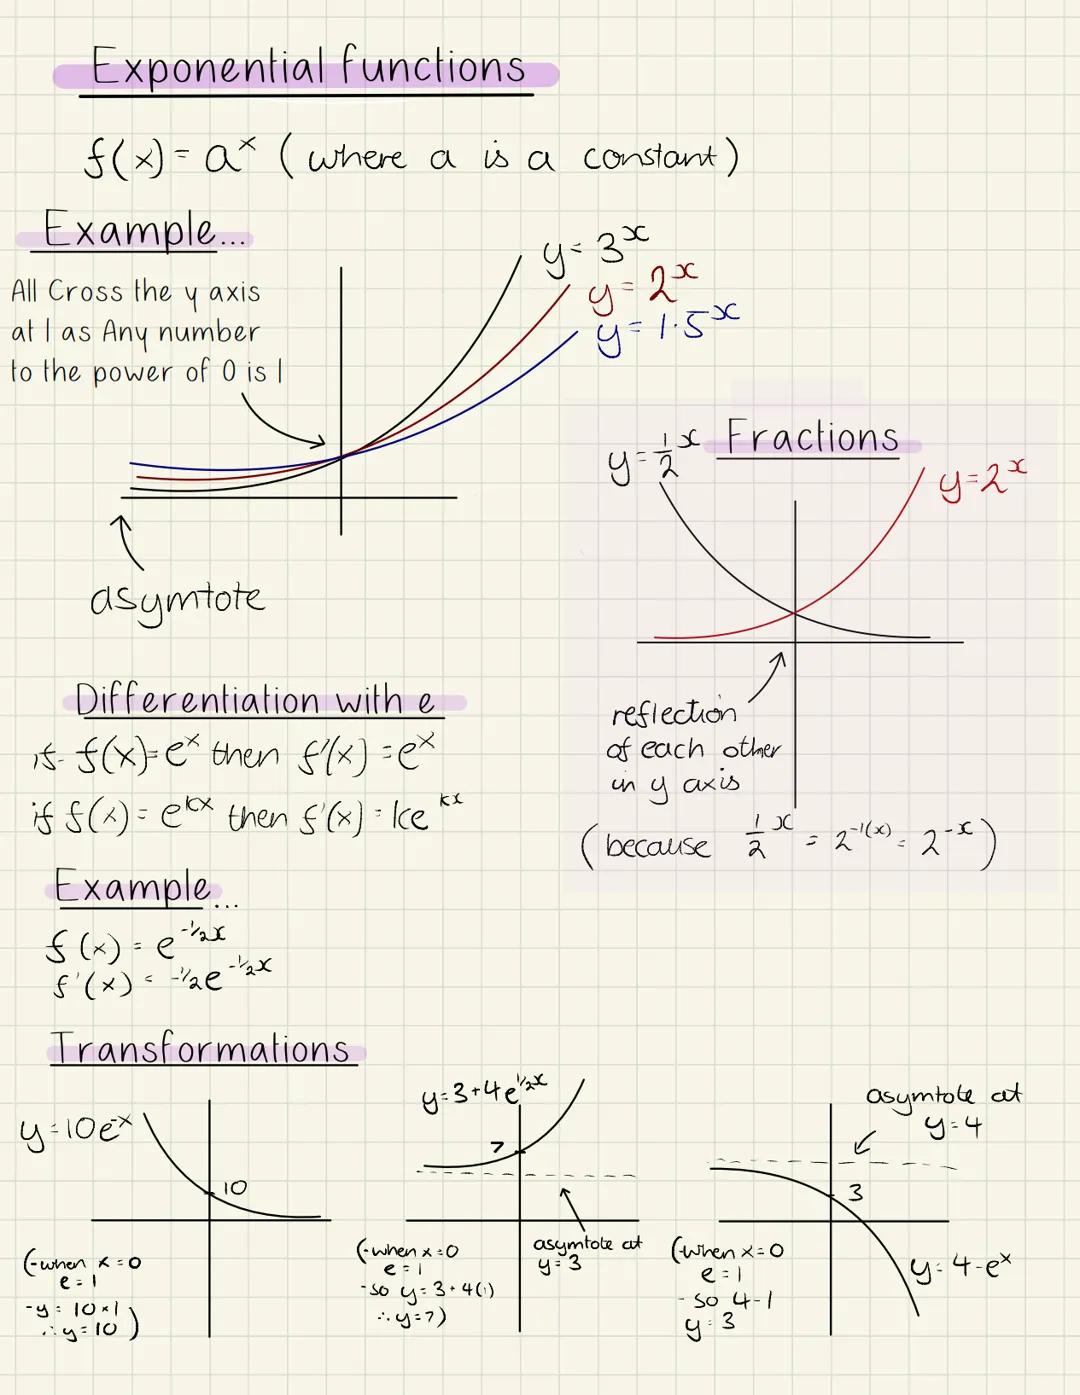 Exponential functions
f(x) = aˣ (where a is a constant)
Example...
All Cross the y axis
at 1 as Any number
to the power of 0 is 1
y = 3ˣ
y = 2ˣ
y = 1.5ˣ
asymtote
Fractions
y = ½ˣ
y = 2ˣ
reflection
of each other
in y axis
(because ½ˣ = 2⁻¹⁽ˣ⁾ = 2⁻ˣ)
Differentiation with e
if f(x) = eˣ then f'(x) = eˣ
if f(x) = eᵏˣ then f'(x) = keᵏˣ
Example...
f(x) = e^-½x
f'(x) = -½e^-½x
Transformations
y = 10e⁻ˣ
10
(-when x = 0
e = 1
-y = 10 × 1
∴ y = 10)
y = 3 + 4e^½x
7
asymtote at
y = 3
(-when x = 0
e = 1
-so y = 3 + 4(1)
∴ y = 7)
asymtote at
y = 4
3
y = 4 - eˣ
(when x = 0
e = 1
- so 4 - 1
y = 3